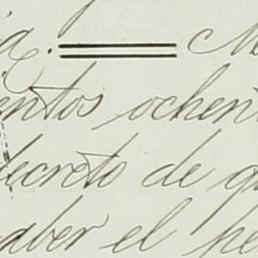 a. == M
entos ochent
decreto de g
aber el he